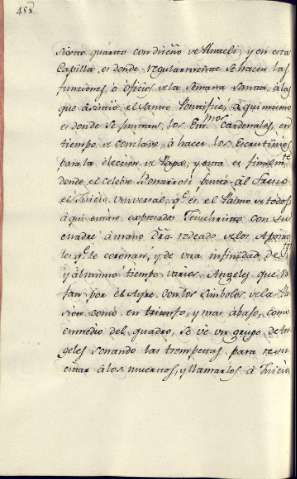 453
siones quanto con diseño de Maneli, y en esta
Capilla es donde regularmente se hacen las
funciones, ò oficios de la Semana Santa, à los
que asiste el Sumo Pontifice, à qui mismo
es donde se juntan los Em.mos Cardenales, en
tiempo de conclave à hacer los Escrutinios
para la eleccion de Papa, y esta es finalm.te
donde el celebre Bonarroti pintò al fresco
el Juicio universal, q.e en el de todos
à qui està expresado Jesuchristo con su
Madre à mano dra rodeado de los Aposto
les q.e le coronan, y de una infinidad de S.tos
y al mismo tiempo varios Angeles, que
tan por el Ayre con los Simbolos de la Pa
sion como en triunfo, y mas abajo, como
en medio del quadro, se ve un grupo de An
geles sonando las trompetas para resu
citar à los muertos, y llamarlos à Juicio